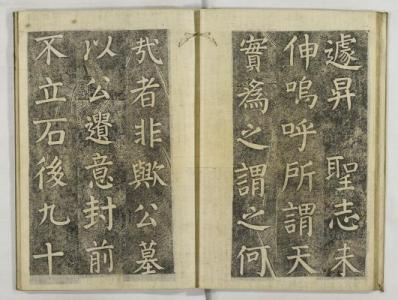 遽昇　聖志未
伸嗚呼所謂天
實為之謂之何
㦲者非歟公墓
以公遺意封前
不立石後九十